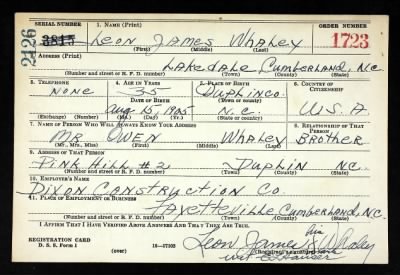 SERIAL NUMBER 1. NAME (Print) ORDER NUMBER
2426 3815 LEON JAMES WHALEY 1723
(First) (Middle) (Last)
ADDRESS (Print)
LAKEDALE CUMBERLAND, N.C.
(Number and street or R. F. D. number) (Town) (County) (State)
3. TELEPHONE 4. AGE IN YEARS 5. PLACE OF BIRTH 6. COUNTRY OF CITIZENSHIP
NONE 35 DUPLIN CO.
DATE OF BIRTH
Aug 15 1905 N.C. U.S.A.
(Exchange) (Number) (Mo.) (Day) (Yr.) (State or country)
7. NAME OF PERSON WHO WILL ALWAYS KNOW YOUR ADDRESS 8. RELATIONSHIP OF THAT PERSON
MR OWEN WHALEY BROTHER
(Mr., Mrs., Miss) (First) (Middle) (Last)
9. ADDRESS OF THAT PERSON
PINK HILL #2 DUPLIN NC.
(Number and street or R. F. D. number) (Town) (County) (State)
10. EMPLOYER'S NAME
DIXON CONSTRUCTION CO.
11. PLACE OF EMPLOYMENT OR BUSINESS
FAYETTEVILLE CUMBERLAND, N.C.
(Number and street or R. F. D. number) (Town) (County) (State)
I AFFIRM THAT I HAVE VERIFIED ABOVE ANSWERS AND THAT THEY ARE TRUE.
REGISTRATION CARD his
D. S. S. Form 1 (over) 16—17105 Leon James X Whaley